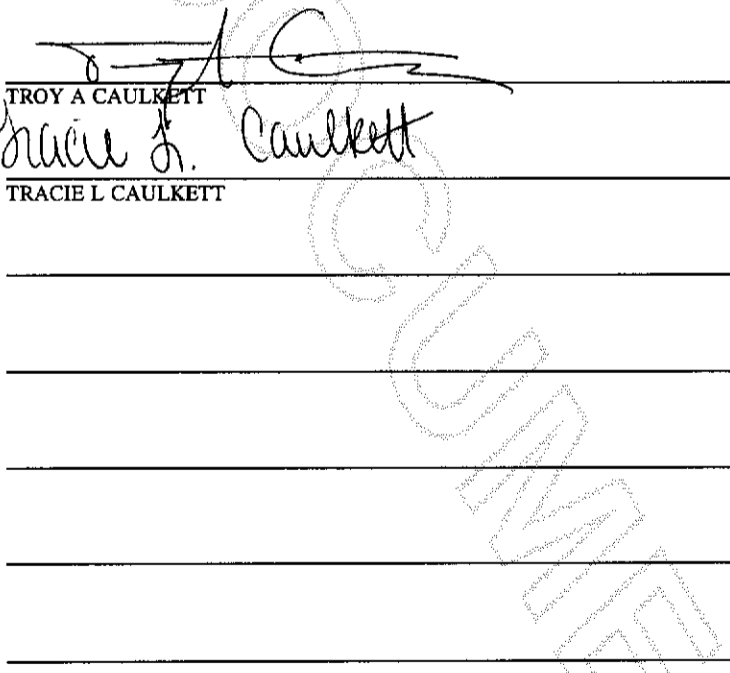 TROY A CAULKETT
Tracie L. Caulkett
TRACIE L CAULKETT